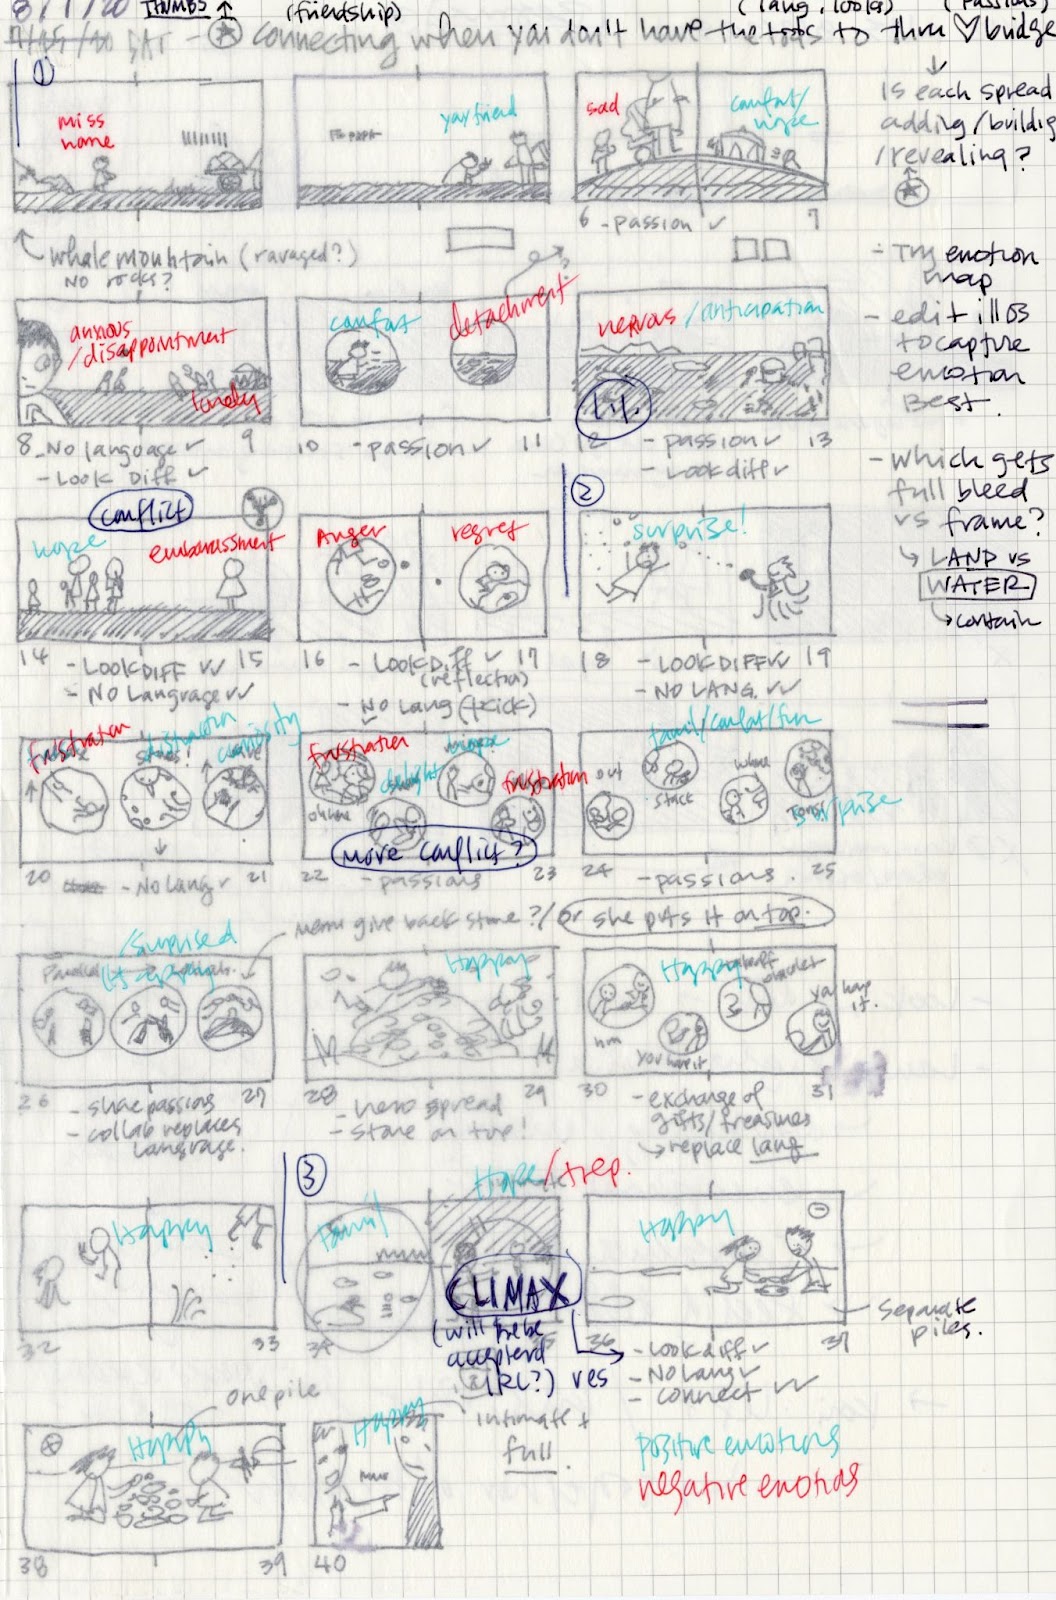 8/1/20 THUMBS ↑ (friendship) (lang, looks) (passions)
SAT - connecting when you don't have the tools to thru ♡ bridge
①
miss
home
yay friend
sad
comfort/
hope
Is each spread
adding/building
/revealing?
6 - passion ✓ 7
whale mountain (ravaged?)
No rocks?
- Try emotion
map
- edit illos
to capture
emotion
Best.
anxious
/disappointment
lonely
comfort
detachment
nervous/anticipation
8 - No language ✓ 9
- Look Diff ✓
10 - passion ✓ 11
12 - passion ✓ 13
- Look diff ✓
- which gets
full bleed
vs frame?
↳ LAND vs
WATER
↳ contain
conflict
hope
embarassment
Anger
regret
②
surprise!
14 - LOOK DIFF ✓✓ 15
- NO Language ✓✓
16 - LOOK DIFF ✓ 17
(reflection)
- No Lang (trick)
18 - LOOK DIFF ✓✓ 19
- NO LANG. ✓✓
frustration
curiosity
frustration
delight
frustration
famil/comfort/fun
out
stack
whoa
surprise
more conflict?
20 - No Lang ✓ 21
22 - passions 23
24 - passions. 25
menu give back stone?/or she puts it on top.
/surprised
Happy
Happy
hmm
you keep it
you keep
it.
26 - share passions 27
- collab replaces
language.
28 - hero spread 29
- stone on top!
30 - exchange of 31
gifts/treasures
↳ replace lang
③
Happy
Famil
Hope/trep.
Happy
CLIMAX
(will he be
accepted
IRL?) yes
separate
piles.
32 33
36 - Look diff ✓ 37
- No Lang ✓
- connect ✓✓
one pile
Happy
Happy
intimate +
full.
positive emotions
negative emotions
38 39 40